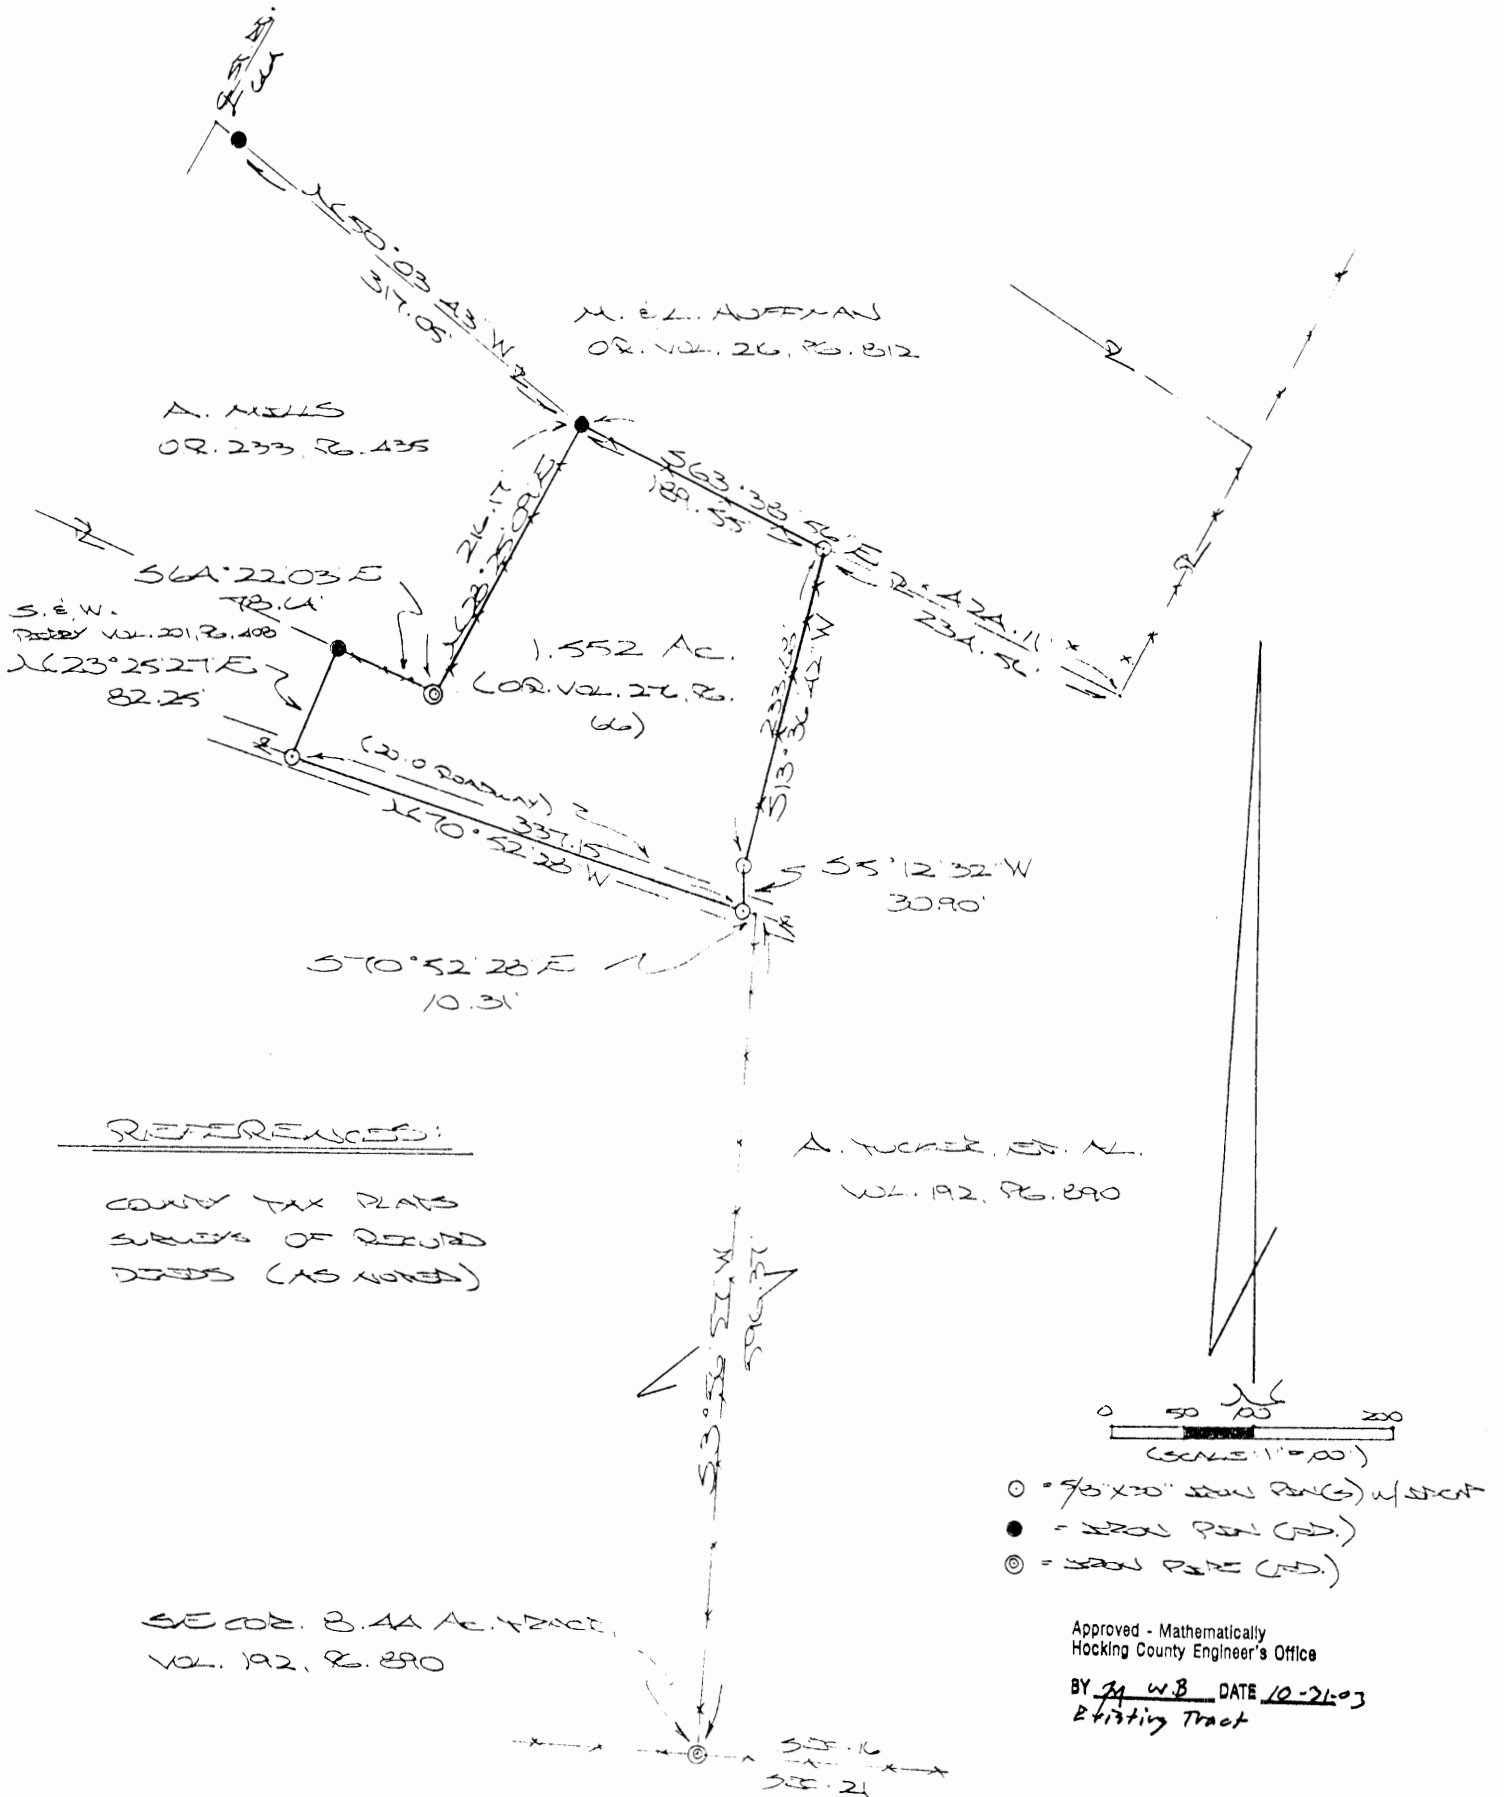 N50°03'43"W
317.05'
M. & L. HUFFMAN
OR. VOL. 26, PG. 812
A. MILLS
OR. 233, PG. 435
216.17'
N28°25'09"E
S63°38'56"E
189.55'
424.11'
234.56'
S64°22'03"E
78.64'
S. & W.
PERRY VOL. 201, PG. 408
N23°25'27"E
82.25'
1.552 Ac.
(OR. VOL. 276, PG.
66)
S13°36'42"W
(20.0' ROADWAY)
337.15'
N70°52'28"W
S5°12'32"W
30.90'
S70°52'28"E
10.31'
REFERENCES:
COUNTY TAX PLATS
SURVEYS OF RECORD
DEEDS (AS NOTED)
A. TUCKER, ET. AL.
VOL. 192, PG. 890
S3°56'57"W
596.37'
N
0 50 100 200
(SCALE: 1"=100')
= 5/8"X30" IRON PIN(S) w/ IDCAP
= IRON PIN (FD.)
= IRON PIPE (FD.)
SE COR. 8.44 Ac. TRACT,
VOL. 192, PG. 890
SEC. 16
SEC. 21
Approved - Mathematically
Hocking County Engineer's Office
BY W.B DATE 10-21-03
Existing Tract